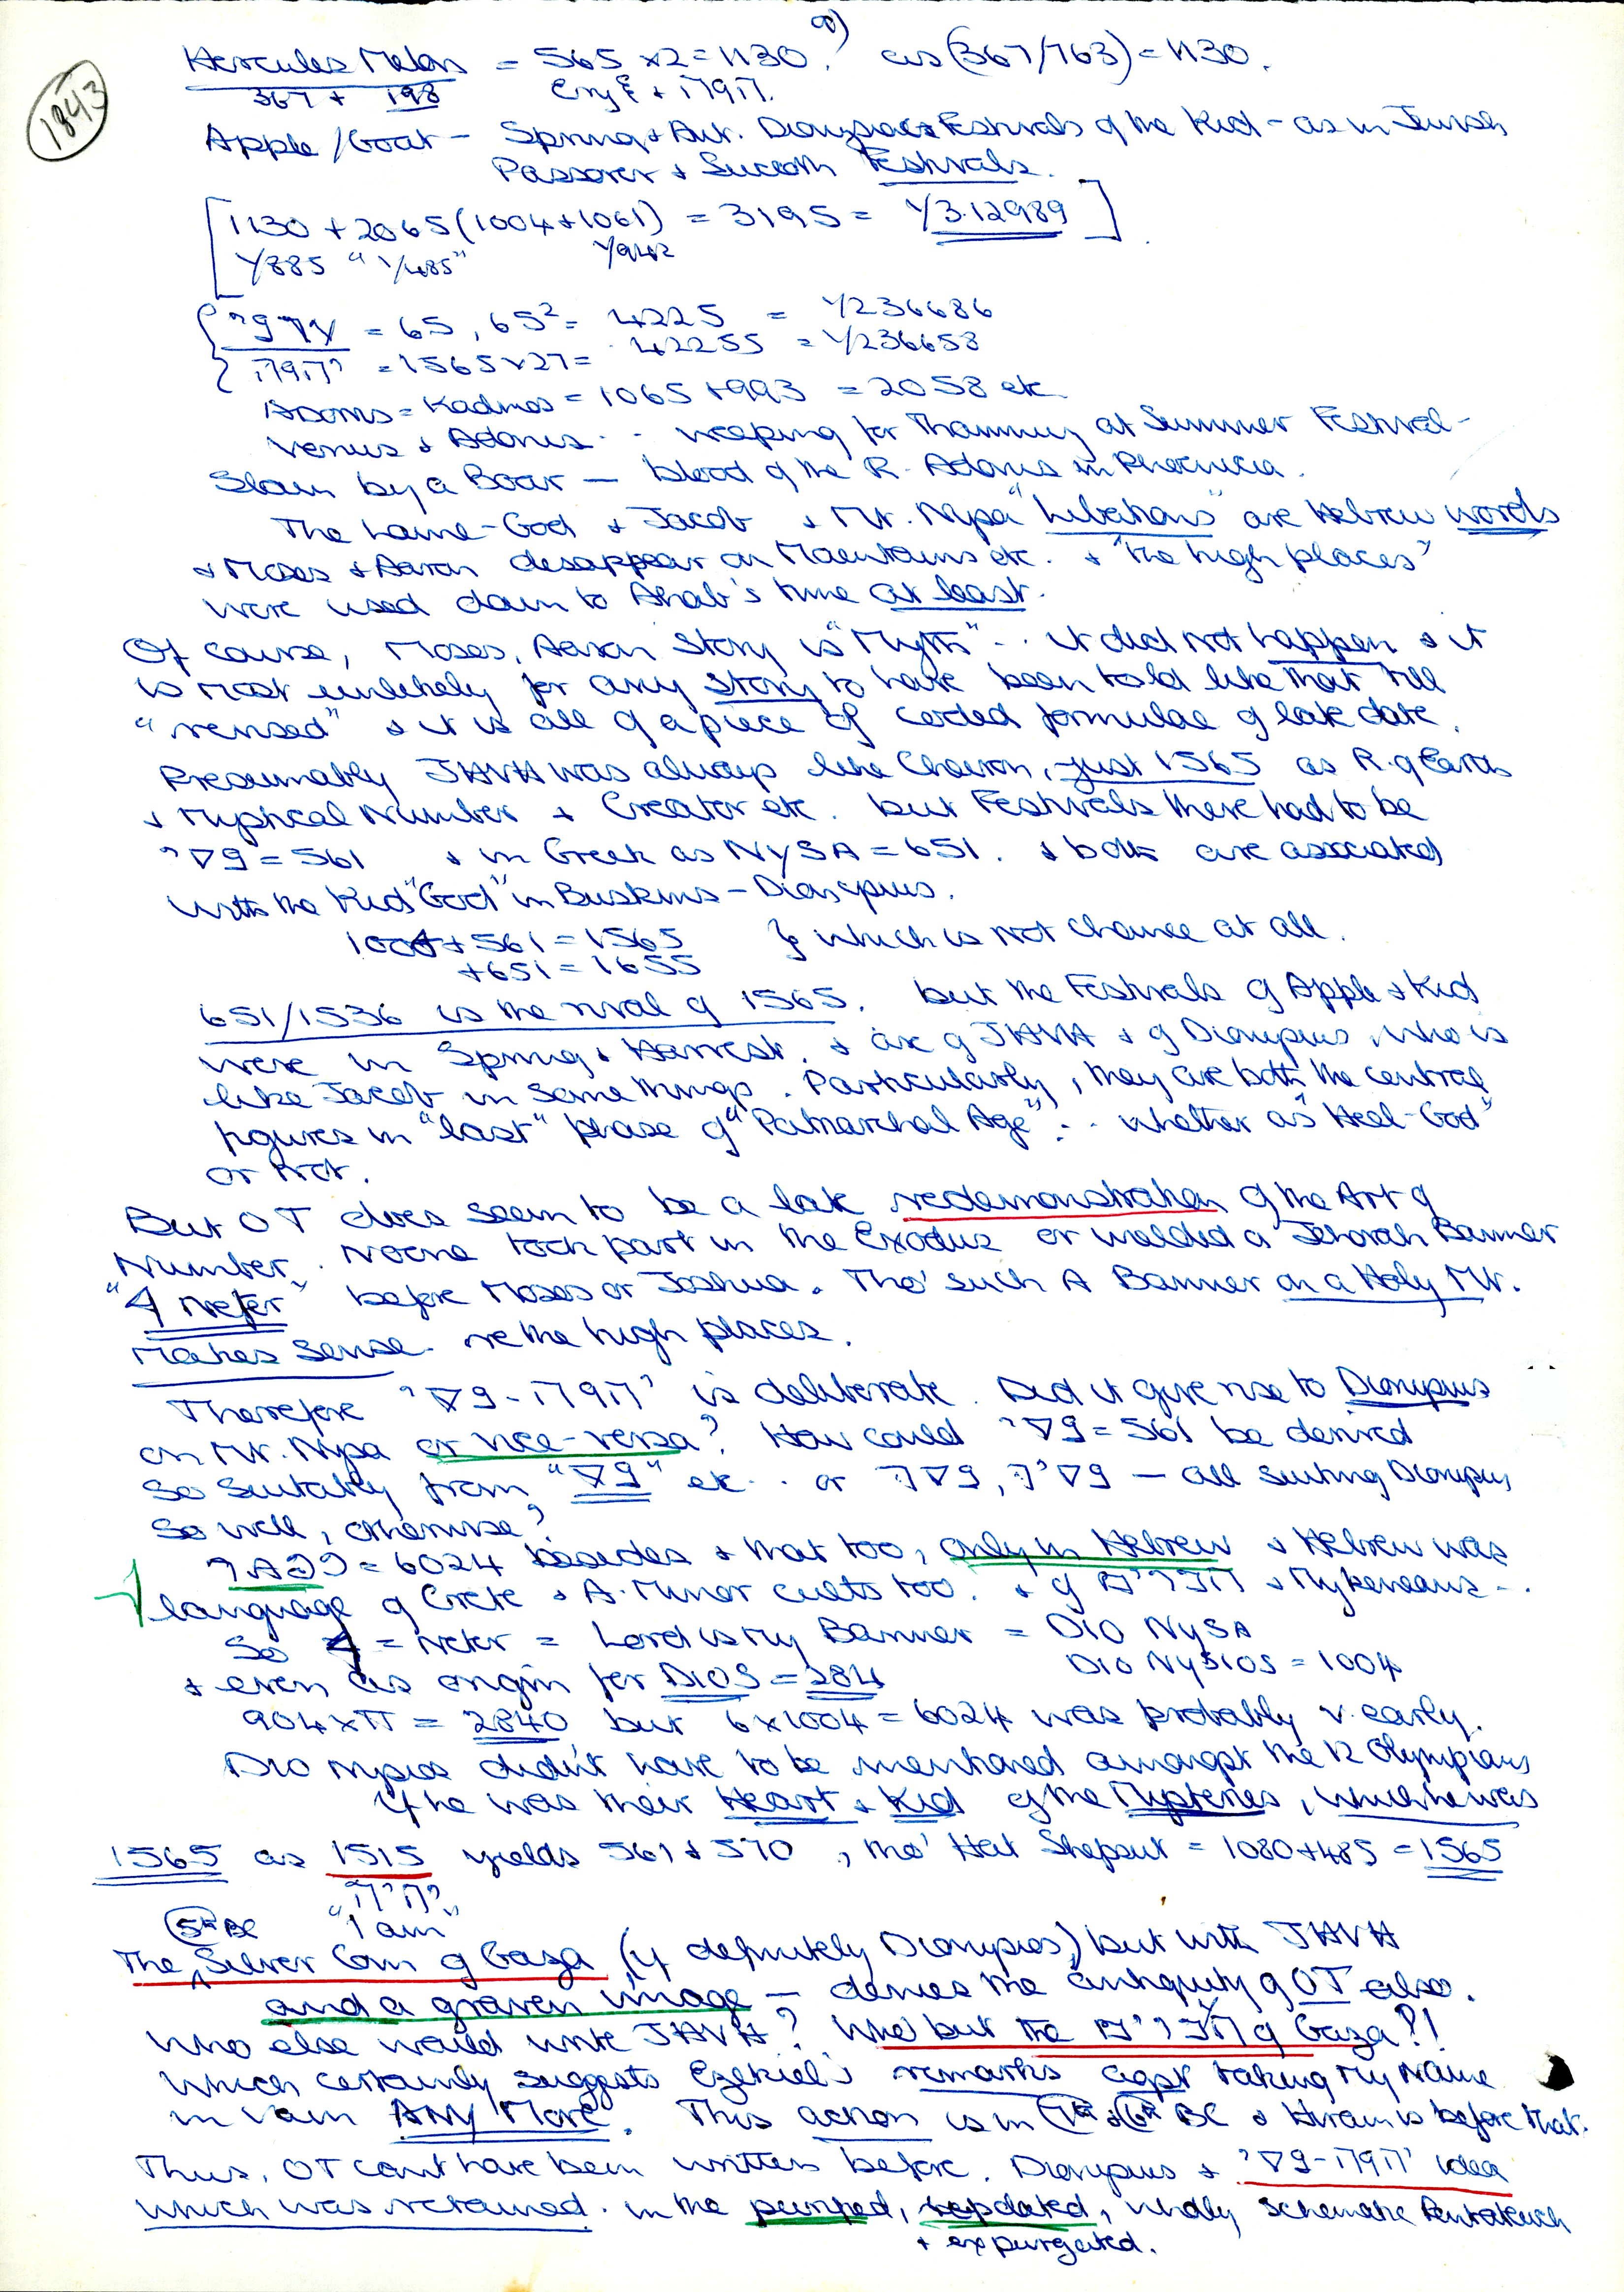 1843
Hercules Melon = 565 x2 = 1130. cos (367/763) = 1130.
367 + 198
Apple / Goat – Spring + Aut. Dionysiac Festivals of the Kid – as in Jewish
Passover + Succoth Festivals.
[1130 + 2065 (1004 + 1061) = 3195 = 1/3.12989]
1/885 "1/485" 1/942
= 65, 65² = 4225 = 1/236686
= 1565 x 27 = 42255 = 1/236658
Adonis = Kadmos = 1065 + 993 = 2058 etc.
Venus & Adonis .. weeping for Thammuz at Summer Festival –
Slain by a Boar – blood of the R. Adonis in Phoenicia.
The Lame-God + Jacob + Mt. Nysa "Libations" are Hebrew words
+ Moses + Aaron disappear on Mountains etc. + "the high places"
were used down to Ahab's time at least.
Of course, Moses, Aaron Story is "Myth" .. it did not happen & it
is most unlikely for any story to have been told like that till
"revised" & it is all of a piece of coded formulae of late date.
Presumably JHVH was always like Chairon, just 1565 as R. of Earth
+ Mystical Number + Creator etc. but Festivals there had to be
= 561 + in Greek as NYSA = 651. & both are associated
with the Kid "God" in Buskins – Dionysus.
1004 + 561 = 1565 } which is not chance at all.
+ 651 = 1655
651/1536 is the rival of 1565. but the Festivals of Apple & Kid
were in Spring & Harvest. & are of JHVH & of Dionysus, who is
like Jacob in some things. Particularly, they are both the central
figures in "last" phase of "Patriarchal Age" .. whether as "Heel-God"
or not.
But OT does seem to be a late redemonstration of the Art of
Number. Noone took part in the Exodus or wielded a Jehovah Banner
"neter" before Moses or Joshua. Tho' such A Banner on a Holy Mt.
Makes sense. re the high places.
Therefore is deliberate. Did it give rise to Dionysus
on Mt. Nysa or vice-versa? How could = 561 be derived
so suitably from etc .. or – all suiting Dionysus
so well, otherwise?
= 6024 besides & that too, only in Hebrew & Hebrew was
language of Crete & A. Minor cults too. & of + Mykeneans ..
So = neter = Lord is my Banner = DIO NYSA
+ even as origin for DIOS = 284 DIO NYSIOS = 1004
904 x π = 2840 but 6 x 1004 = 6024 was probably v. early.
Dio nysios didn't have to be mentioned amongst the 12 Olympians
if he was their Heart & Kid of the Mysteries, which he was
1565 as 1515 yields 561 + 570, tho' Hat Shepsut = 1080 + 485 = 1565
היהי
5th BC "I am"
The Silver Coin of Gaza (if definitely Dionysios) but with JHVH
and a graven image – denies the antiquity of OT also.
Who else would write JHVH? Who but the of Gaza?!
Which certainly suggests Ezekiel's remarks agst taking My Name
in vain ANY MORE. This action is in 7th & 6th BC & Hiram is before that.
Thus, OT cant have been written before. Dionysus + idea
which was retained. in the purged, updated, wholly schematic Pentateuch
+ expurgated.